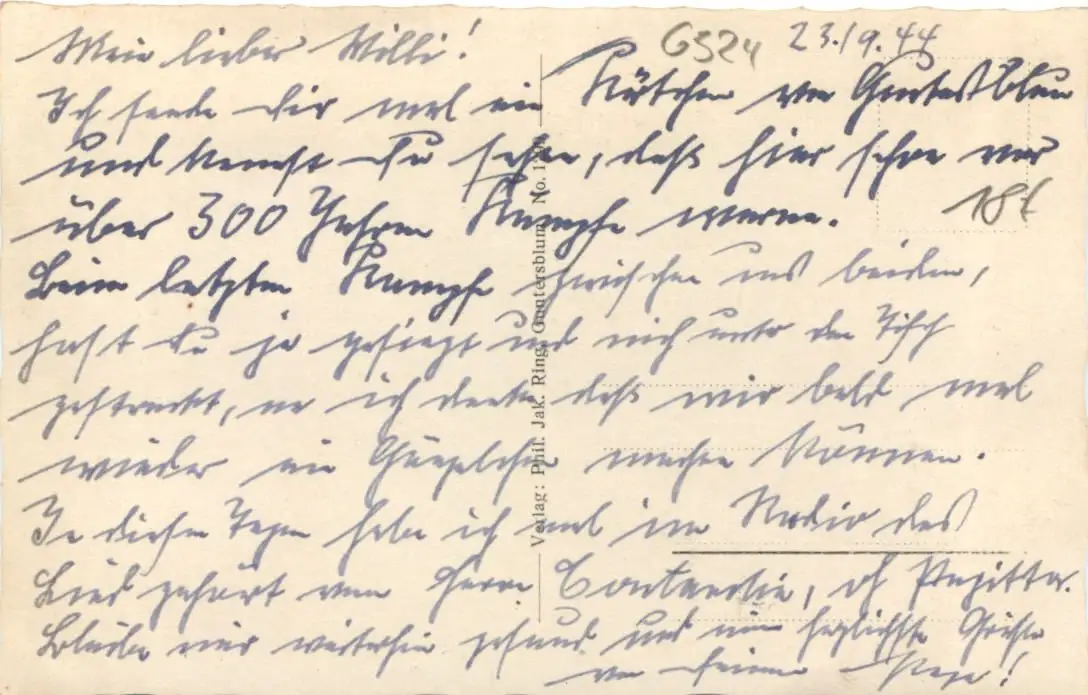 23./9.44
6324
Mein lieber Willi!
Ich sende Dir mal ein Kärtchen von Guntersblum
und kannst Du sehen, daß hier schon vor
18t
über 300 Jahren Kämpfe waren.
Beim letzten Kampfe zwischen uns beiden,
hast Du ja gesiegt und mich unter den Tisch
gestreckt, na ich denke daß wir bald mal
wieder ein machen können.
In diesen Tagen habe ich mal im Radio das
Lied gehört vom Herrn oh
Bleibe mir weiterhin gesund und nimm herzlichste Grüße
von Deinem
Verlag: Phil. Jak. Ring, Guntersblum No.